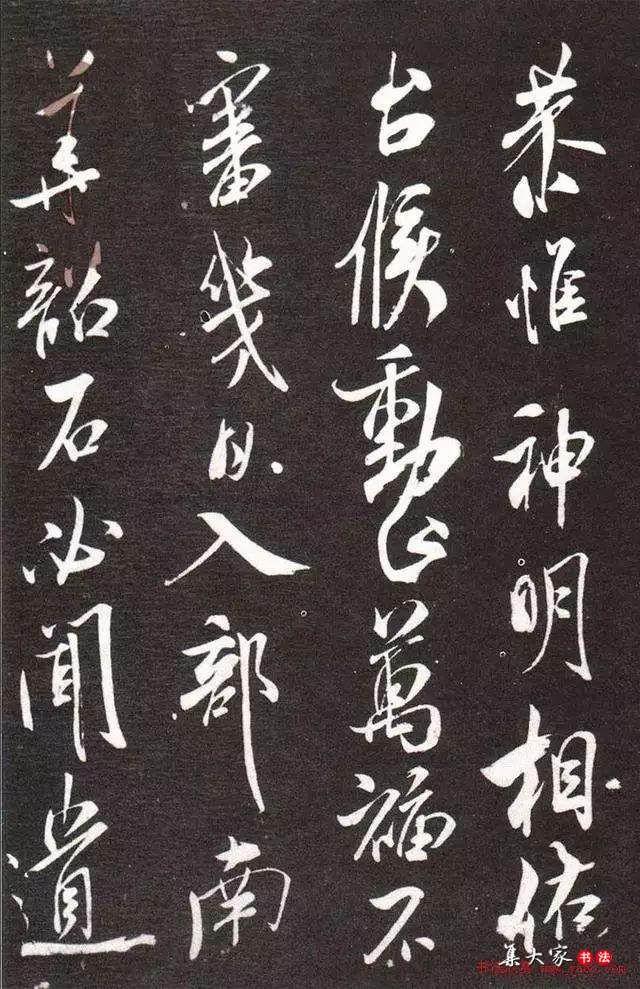 恭惟神明相佑
台候動止萬福不
審幾日入部南
華韶石必聞遺
集大家书法